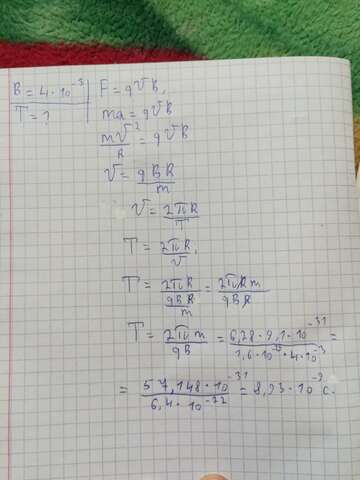 B = 4·10⁻³
T = ?
F = qVB,
ma = qVB
mV²/R = qVB
V = qBR/m
V = 2πR/T
T = 2πR/V,
T = 2πR/(qBR/m) = 2πRm/qBR
T = 2πm/qB = 6,28·9,1·10⁻³¹/1,6·10⁻¹⁹·4·10⁻³ =
= 57,148·10⁻³¹/6,4·10⁻²² = 8,93·10⁻⁹ с.